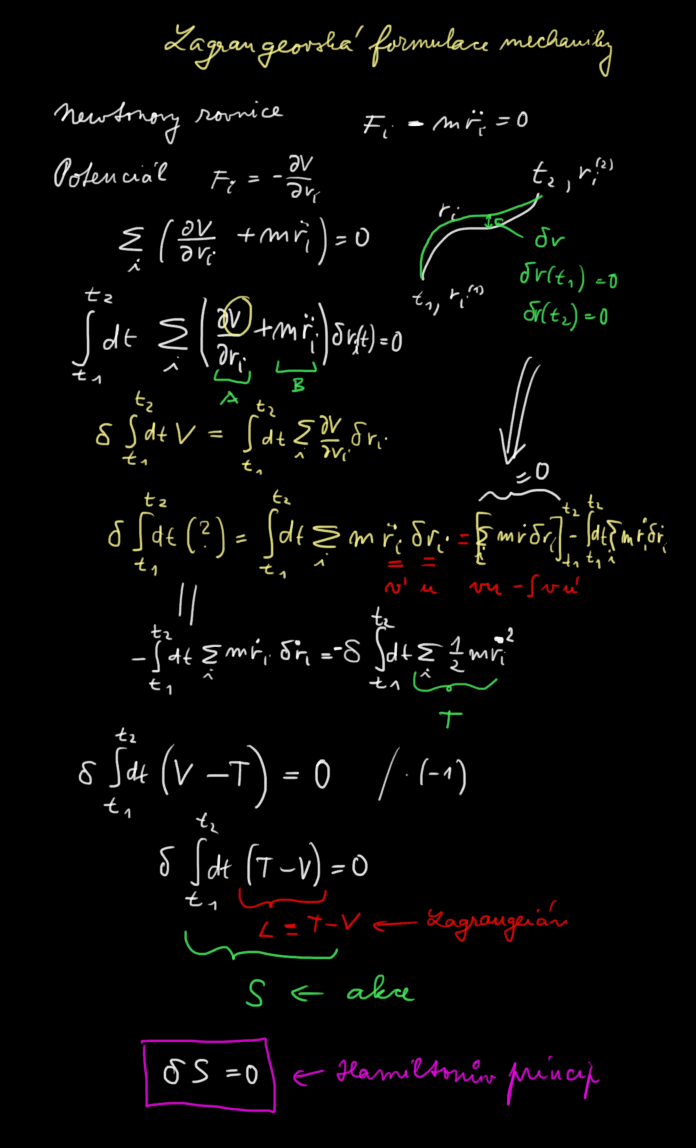 Lagrangeovská formulace mechaniky
Newtonovy rovnice F_i - m r̈_i = 0
Potenciál F_i = - ∂V/∂r_i
t_2, r_i^(2)
r_i
∑_i ( ∂V/∂r_i + m r̈_i ) = 0
δr
δr(t_1) = 0
t_1, r_i^(1)
δr(t_2) = 0
∫_{t_1}^{t_2} dt ∑_i ( ∂V/∂r_i + m r̈_i ) δr_i(t) = 0
A B
δ ∫_{t_1}^{t_2} dt V = ∫_{t_1}^{t_2} dt ∑_i ∂V/∂r_i δr_i
= 0
δ ∫_{t_1}^{t_2} dt (?) = ∫_{t_1}^{t_2} dt ∑_i m r̈_i δr_i = [∑_i m ṙ δr_i]_{t_1}^{t_2} - ∫_{t_1}^{t_2} dt ∑_i m ṙ_i δṙ_i
v' u vu - ∫vu'
||
- ∫_{t_1}^{t_2} dt ∑_i m ṙ_i δṙ_i = -δ ∫_{t_1}^{t_2} dt ∑_i 1/2 m ṙ_i^2
T
δ ∫_{t_1}^{t_2} dt (V - T) = 0 / · (-1)
δ ∫_{t_1}^{t_2} dt (T - V) = 0
L = T - V ← Lagrangeián
S ← akce
δS = 0 ← Hamiltonův princip